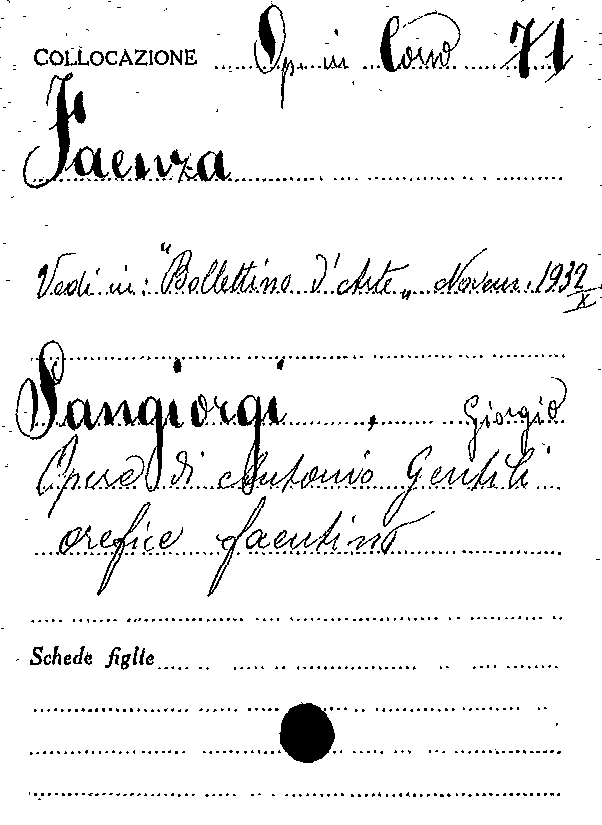 COLLOCAZIONE Op. in Corso 71
Faenza
Vedi in: "Bollettino d'Arte„ Novem. 1932
X
Sangiorgi, Giorgio
Opera di Antonio Gentili
orefice faentino
Schede figlie